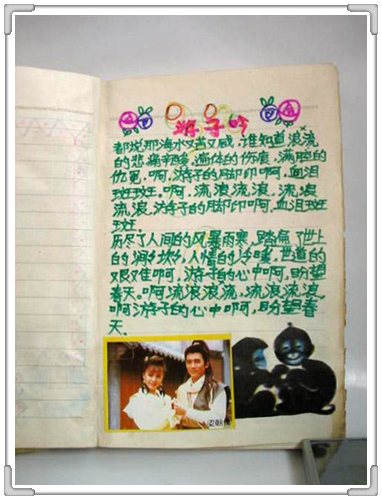 游子吟
都说那海水又苦又咸,谁知道浪流
的悲痛辛酸,遍体的伤痕,满腔的
仇冤,啊,游子的脚印啊,血泪
斑斑,啊,流浪流浪,流浪
流浪,游子的脚印啊,血泪斑
斑。
历尽了人间的风暴雨寒,踏遍了世上
的沟沟坎坎,人情的冷暖,世道的
艰难啊,游子的心中啊,盼望
春天。啊流浪流浪,流浪流浪,
啊游子的心中啊,盼望春
天。